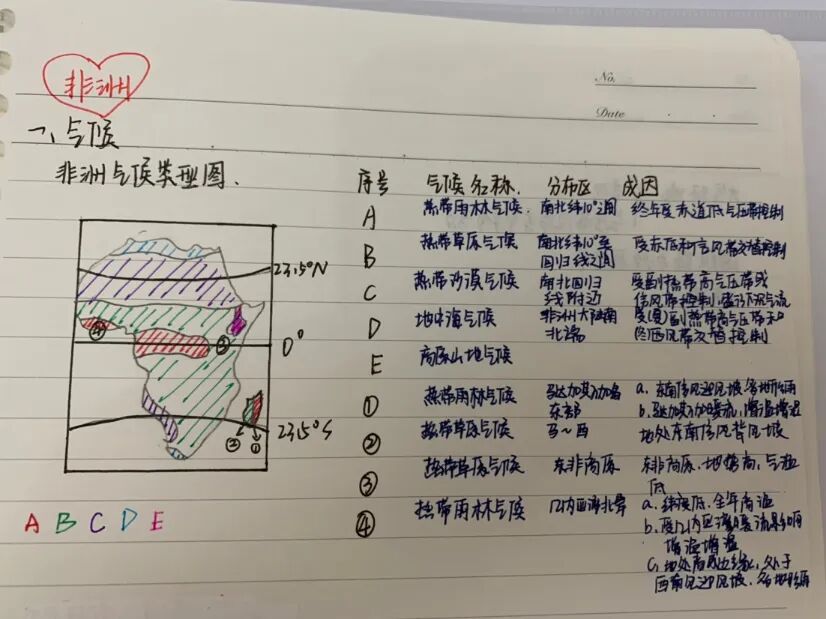 非洲
No.
Date
一、气候
非洲气候类型图.
序号 气候名称. 分布区 成因
A 热带雨林气候. 南北纬10°之间 终年受赤道低气压带控制
B 热带草原气候 南北纬10°至回归线之间 受赤低和信风带交替控制
C 热带沙漠气候 南北回归线附近 受副热带高气压带或信风带控制,盛行下沉气流
D 地中海气候 非洲大陆南北端 夏(夏)副热带高气压带和冬西风带交替控制
E 高原山地气候
① 热带雨林气候 马达加斯加岛东部 a. 东南信风迎风坡.多地形雨
b. 马达加斯加暖流,增温增湿
② 热带草原气候 马~西 地处东南信风背风坡
③ 热带草原气候 东非高原 东非高原,地势高,气温低
④ 热带雨林气候 几内亚湾北岸 a. 纬度低.全年高温
b. 受几内亚湾暖流影响增温增湿
c. 地处高原边缘,处于西南风迎风坡.多地形雨
23.5°N
0°
23.5°S
④ ③
② ①
A B C D E